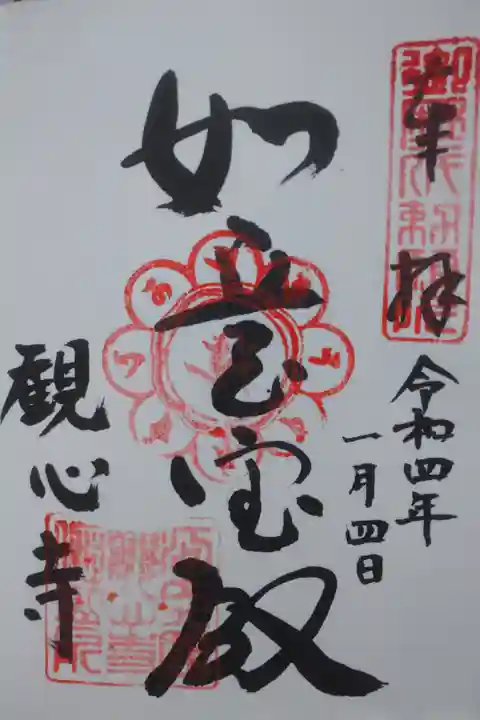 奉拝
令和四年
一月四日
如意宝殿
観心寺